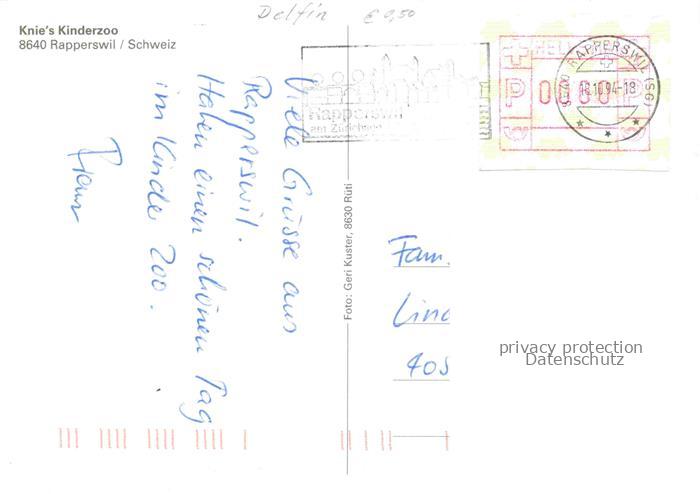 Delfin € 0,50
Knie's Kinderzoo
8640 Rapperswil / Schweiz
Viele Grüsse aus
Rapperswil.
Haben einen schönen Tag
im Kinder Zoo.
Foto: Geri Kuster, 8630 Rüti
Rapperswil
am Zürichsee
HEL
P P
RAPPERSWIL (SG)
18.10.94-18
Fam.
Lin
405
privacy protection
Datenschutz